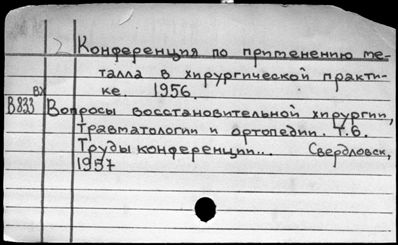 2 Конференция по применению ме-
талла в хирургической практи-
ке. 1956.
вх
В833 Вопросы восстановительной хирургии,
травматологии и ортопедии. Т.6.
Труды конференции... Свердловск,
1957